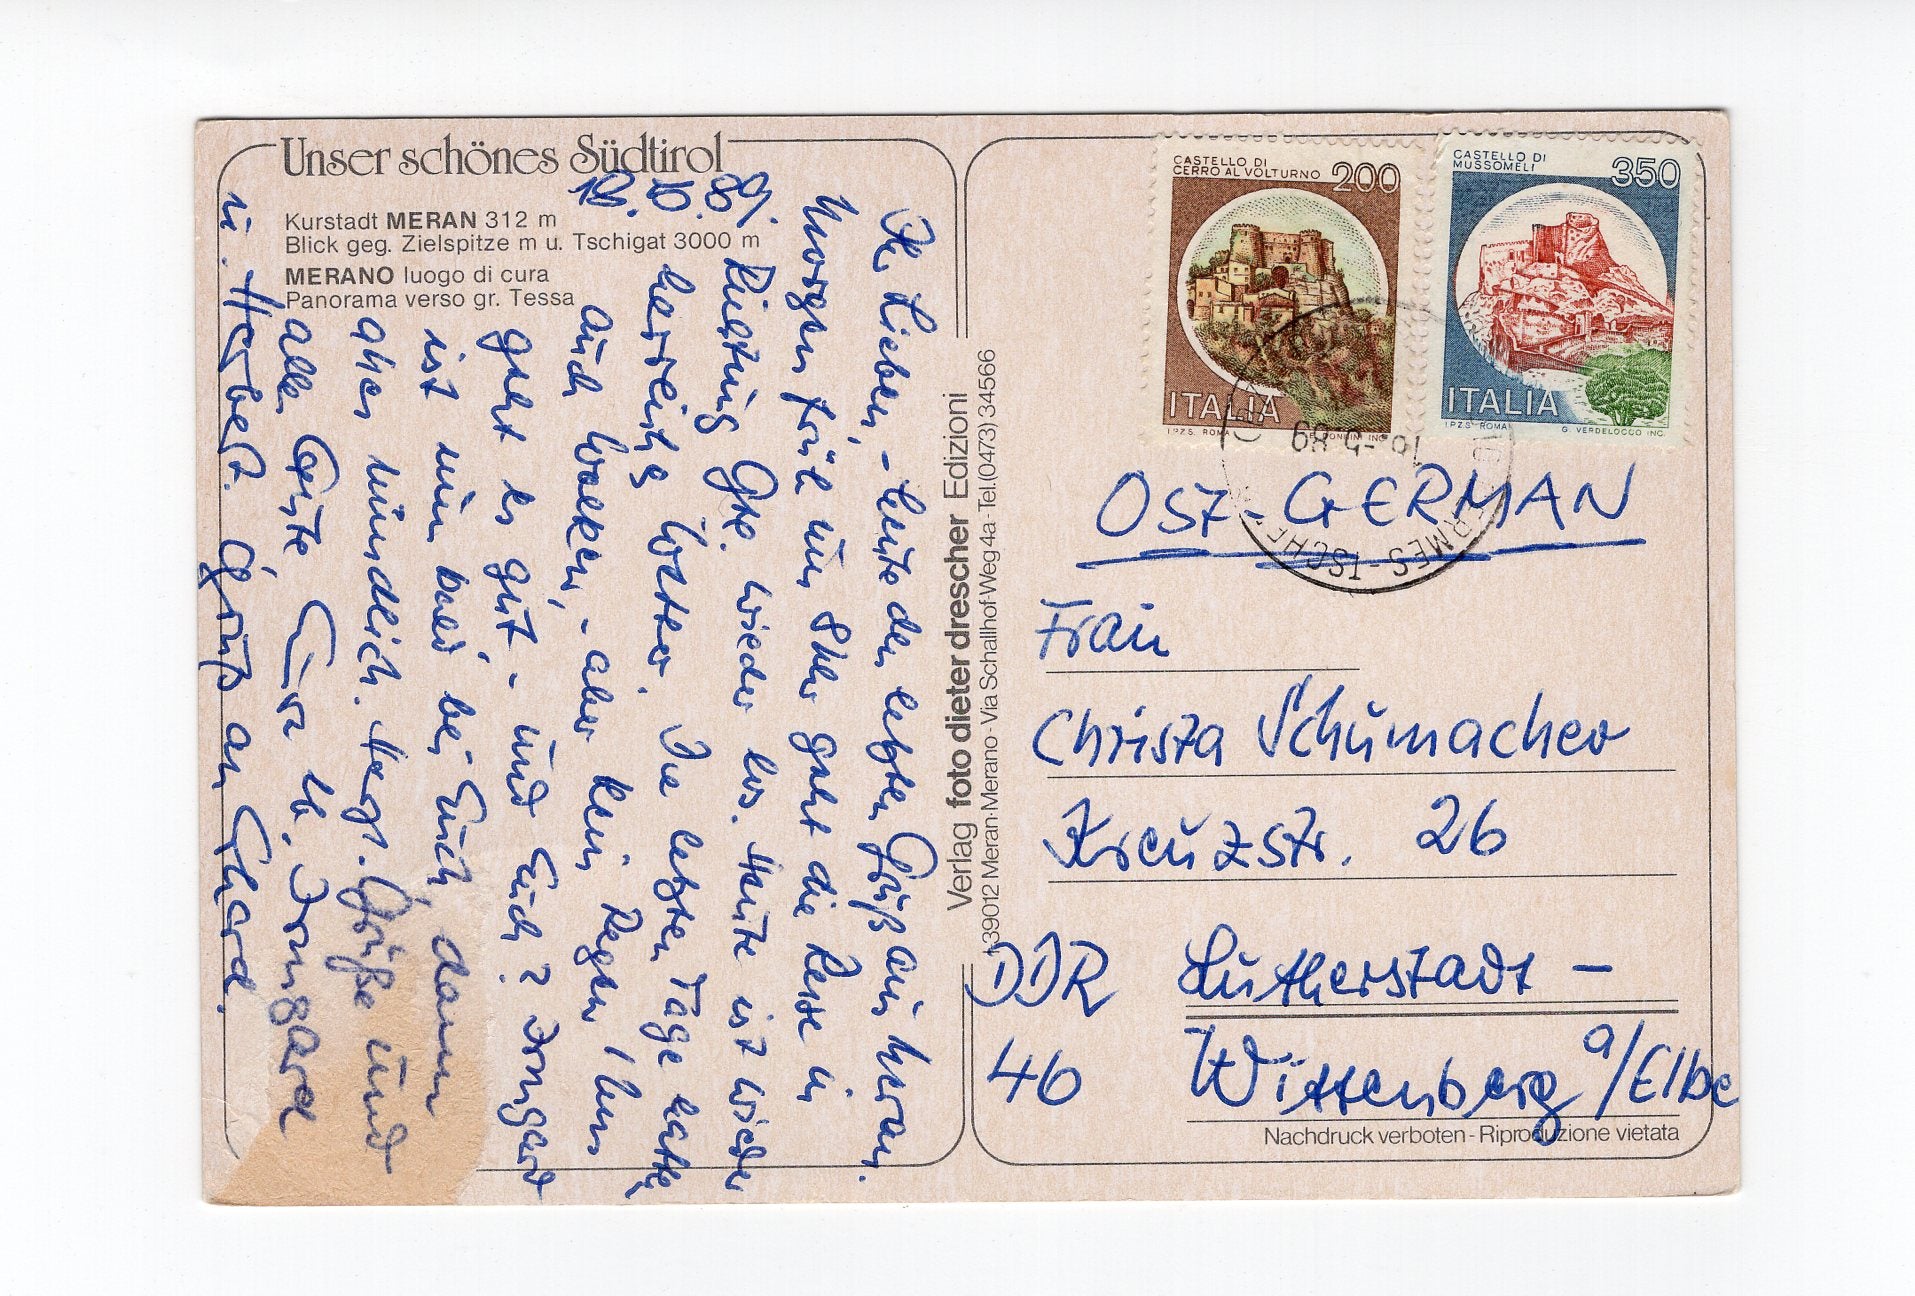 Unser schönes Südtirol
Kurstadt MERAN 312 m
Blick geg. Zielspitze m u. Tschigat 3000 m
MERANO luogo di cura
Panorama verso gr. Tessa
Ihr Lieben, - heute den letzten Gruß aus Meran.
Morgen früh um 8 Uhr geht die Reise in
Richtung Gte. wieder los. Heute ist wieder
herrenlichs Wetter. Die letzten Tage hatte
auch Wolken, - aber kein Regen! Uns
geht es gut - und Euch? Irmgard
ist nun bald bei Euch, dann
alles mündlich. Herzl. Grüße und
alles Gute, Eure lb. Irmgard
u. Herbert. Gruß an Ehard.
Verlag foto dieter drescher Edizioni
I-39012 Meran-Merano - Via Schallhof-Weg 4a - Tel. (0473) 34566
CASTELLO DI
CERRO AL VOLTURNO 200
ITALIA
I.P.Z.S. ROMA
CASTELLO DI
MUSSOMELI 350
ITALIA
I.P.Z.S. ROMA G. VERDELOCCO INC.
OST-GERMAN
Frau
Christa Schumacher
Kreuzstr. 26
DDR Lutherstadt -
46 Wittenberg a/Elbe
Nachdruck verboten - Riproduzione vietata